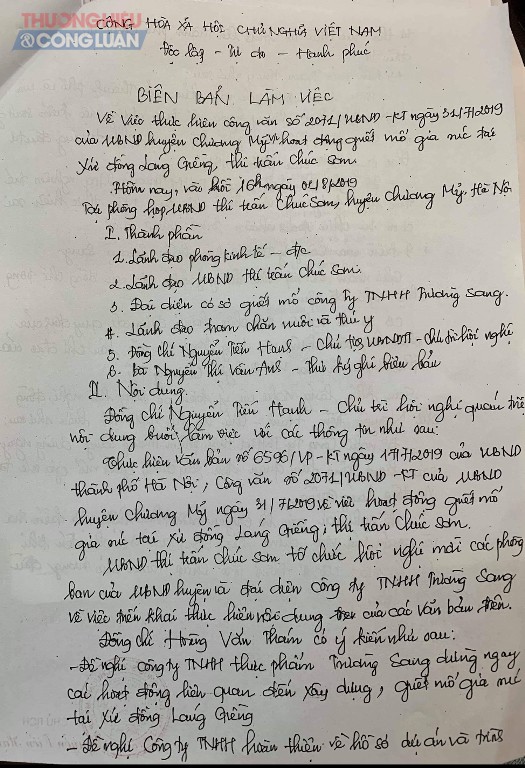 THƯƠNG HIỆU
& CÔNG LUẬN
CỘNG HÒA XÃ HỘI CHỦ NGHĨA VIỆT NAM
Độc lập - Tự do - Hạnh phúc
BIÊN BẢN LÀM VIỆC
Về việc thực hiện công văn số 2071/UBND-KT ngày 31/7/2019
của UBND huyện Chương Mỹ về hoạt động giết mổ gia súc tại
Xứ đồng Láng Giềng, thị trấn Chúc Sơn.
Hôm nay, vào hồi 16h ngày 02/8/2019
Tại phòng họp UBND thị trấn Chúc Sơn, huyện Chương Mỹ, Hà Nội
I. Thành phần
1. Lãnh đạo phòng kinh tế - đ/c
2. Lãnh đạo UBND thị trấn Chúc Sơn.
3. Đại diện cơ sở giết mổ công ty TNHH Trường Sang.
4. Lãnh đạo trạm chăn nuôi và thú y
5. Đồng chí Nguyễn Tiến Hanh - Chủ tịch UBNDTT - Chủ trì hội nghị
6. Bà Nguyễn Thị Vân Anh - Thư ký ghi biên bản
II. Nội dung.
Đồng chí Nguyễn Tiến Hanh - Chủ trì hội nghị quán triệt
nội dung buổi làm việc với các thông tin như sau:
Thực hiện văn bản số 6596/VP-KT ngày 17/7/2019 của UBND
thành phố Hà Nội, Công văn số 2071/UBND-KT của UBND
huyện Chương Mỹ ngày 31/7/2019 về việc hoạt động giết mổ
gia súc tại Xứ đồng Láng Giềng, thị trấn Chúc Sơn.
UBND thị trấn Chúc Sơn tổ chức hội nghị mời các phòng
ban của UBND huyện và đại diện công ty TNHH Trường Sang
về việc triển khai thực hiện nội dung của các văn bản trên.
Đồng chí Hoàng Văn Thám có ý kiến như sau:
- Đề nghị công ty TNHH thực phẩm Trường Sang dừng ngay
các hoạt động liên quan đến xây dựng, giết mổ gia súc
tại Xứ đồng Láng Giềng
- Đề nghị Công ty TNHH hoàn thiện về hồ sơ dự án và trình